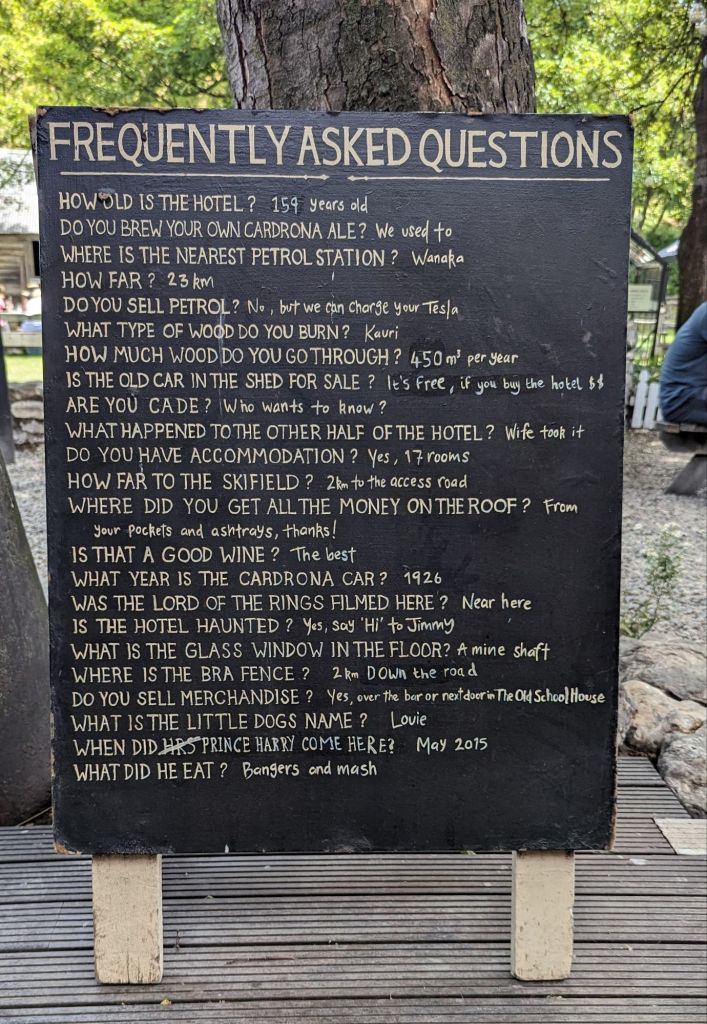 FREQUENTLY ASKED QUESTIONS
HOW OLD IS THE HOTEL? 159 years old
DO YOU BREW YOUR OWN CARDRONA ALE? We used to
WHERE IS THE NEAREST PETROL STATION? Wanaka
HOW FAR? 23 km
DO YOU SELL PETROL? No, but we can charge your Tesla
WHAT TYPE OF WOOD DO YOU BURN? Kauri
HOW MUCH WOOD DO YOU GO THROUGH? 450 m³ per year
IS THE OLD CAR IN THE SHED FOR SALE? It's free, if you buy the hotel $$
ARE YOU CADE? Who wants to know?
WHAT HAPPENED TO THE OTHER HALF OF THE HOTEL? Wife took it
DO YOU HAVE ACCOMMODATION? Yes, 17 rooms
HOW FAR TO THE SKIFIELD? 2km to the access road
WHERE DID YOU GET ALL THE MONEY ON THE ROOF? From
your pockets and ashtrays, thanks!
IS THAT A GOOD WINE? The best
WHAT YEAR IS THE CARDRONA CAR? 1926
WAS THE LORD OF THE RINGS FILMED HERE? Near here
IS THE HOTEL HAUNTED? Yes, say 'Hi' to Jimmy
WHAT IS THE GLASS WINDOW IN THE FLOOR? A mine shaft
WHERE IS THE BRA FENCE? 2km DOWN the road
DO YOU SELL MERCHANDISE? Yes, over the bar or next door in The Old School House
WHAT IS THE LITTLE DOGS NAME? Louie
WHEN DID HRS PRINCE HARRY COME HERE? May 2015
WHAT DID HE EAT? Bangers and mash